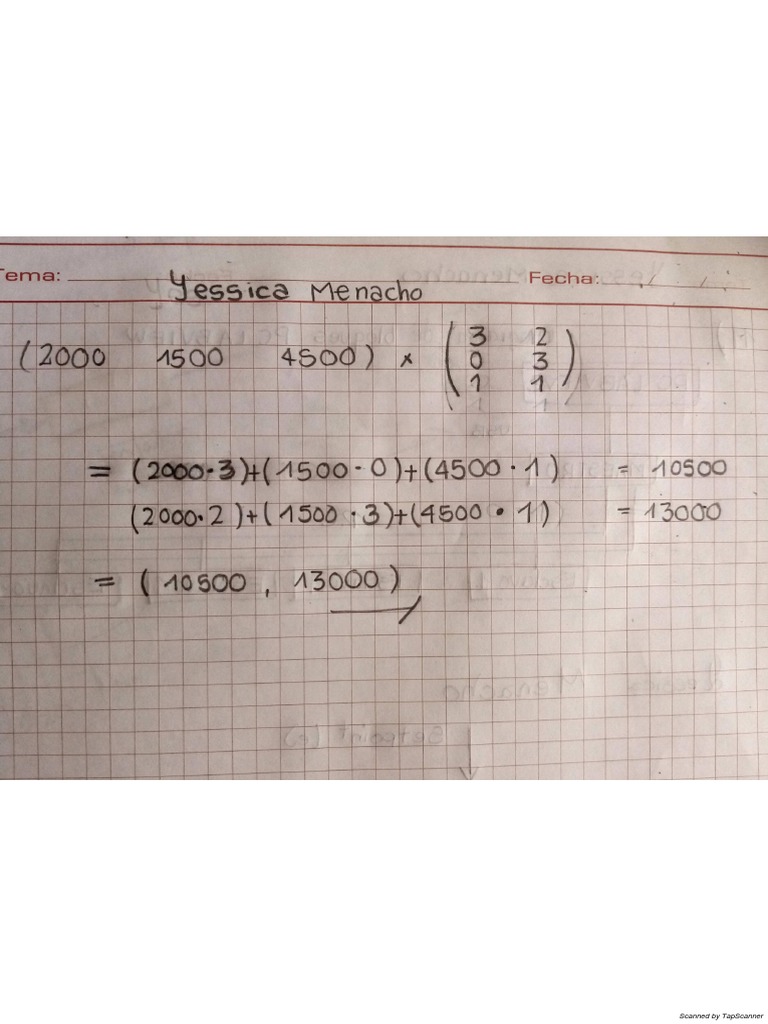 Tema: Yessica Menacho Fecha:
(2000 1500 4500) × (3 2
0 3
1 1)
= (2000·3)+(1500·0)+(4500·1) = 10500
(2000·2)+(1500·3)+(4500·1) = 13000
= (10500, 13000)
Scanned by TapScanner